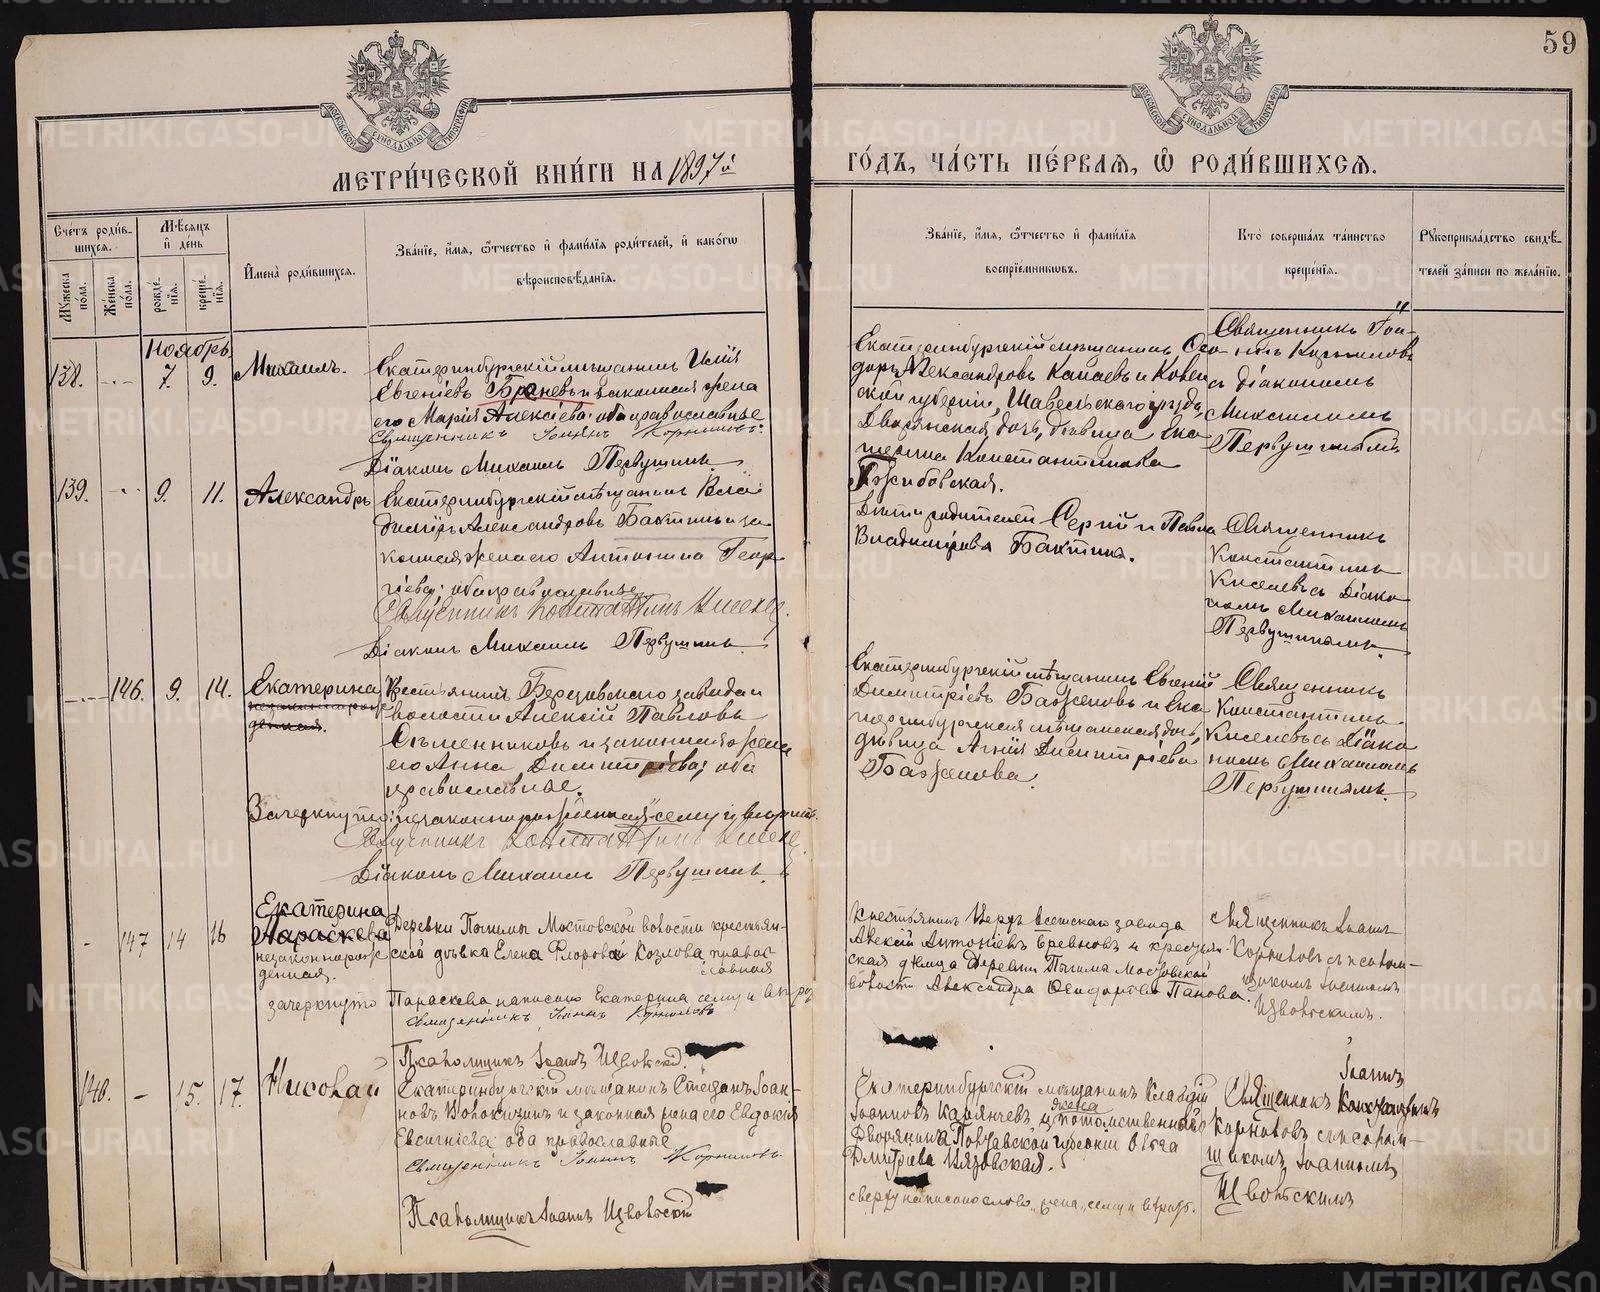 59
МЕТРИ́ЧЕСКОЙ КНИ́ГИ НА 1897й
ГО́ДЪ, ЧА́СТЬ ПЕ́РВАЯ, Ѽ РОДИ́ВШИХСЯ.
Сче́тъ роди́в-
шихся.
Мѣ́сяцъ
и҆ де́нь
Мꙋ́жеска
по́ла.
Же́нска
по́ла.
рожде́-
нїя.
креще́-
нїя.
И҆мена̀ роди́вшихся.
Зва́нїе, и҆́мя, ѻ҆́тчество и҆ фами́лїя роди́телей, и҆ како́гѡ
вѣроисповѣ́данїя.
Зва́нїе, и҆́мя, ѻ҆́тчество и҆ фами́лїя
воспрїе́мникѡвъ.
Кто̀ соверша́лъ та́инство
креще́нїя.
Рꙋкоприкла́дство свидѣ́-
телей за́писи по жела́нїю.
Ноябрь
138. - 7. 9. Михаилъ.
Екатеринбургскій мѣщанинъ Илія
Евгеніевъ и законная жена
его Марія Алексіева; оба православные
Священникъ Іоаннъ Корниловъ.
Діаконъ Михаилъ Первушинъ.
Екатеринбургскій мѣщанинъ Ѳео-
доръ Александровъ Капаевъ и Ковен
ской губерніи, Шавельскаго уѣзда,
Дворянская дочь, дѣвица Ека
терина Константинова
Священникъ Іоан-
нъ Корниловъ
съ діакономъ
Михаиломъ
Первушинымъ
139. - 9. 11. Александръ
Екатеринбургскій мѣщанинъ Вла
диміръ Александровъ Бактинъ и за
конная жена его Антонина Геор
гіева; оба православные
Священникъ Константинъ Киселевъ.
Діаконъ Михаилъ Первушинъ.
Дѣти родителей Сергій и Павла
Владимірова Бактина.
Священникъ
Константинъ
Киселевъ съ Діако
номъ Михаиломъ
Первушинымъ.
- 146. 9. 14. Екатерина
незаконнорож
денная.
Крестьянинъ Березовскаго завода и
волости Алексій Павловъ
Сѣменниковъ и законная жена
его Анна Димитріева; оба
православные.
Зачеркнуто: "незаконнорожденная" сему и вѣрить.
Священникъ Константинъ Киселевъ
Діаконъ Михаилъ Первушинъ.
Екатеринбургскій мѣщанинъ Евгеній
Димитріевъ Баженовъ и Ека
теринбургская мѣщанская дочь,
дѣвица Агнія Димитріева
Баженова.
Священникъ
Константинъ
Киселевъ съ Діако
номъ Михаиломъ
Первушинымъ.
- 147 14 16
Екатерина
Параскева
незаконнорож
денная.
Деревни Пышмы Мостовской волости крестьян-
ской дѣвка Елена Флорова Козлова, право-
славная
зачеркнуто Параскева написано Екатерина сему и вѣрить
Священникъ Іоаннъ Корниловъ
Псаломщикъ Іоаннъ Цвѣтскій.
Крестьянинъ Верхъ Исетскаго завода
Алексій Антоніевъ Бревновъ и крестьян-
ская дѣвица деревни Пышмы Мостовской
волости Александра Ѳеодорова Панова.
Священникъ Іоаннъ
Корниловъ съ псалом-
щикомъ Іоанномъ
Цвѣтскимъ.
140. - 15. 17. Николай
Екатеринбургскій мѣщанинъ Стефанъ Іоан-
новъ Волокитинъ и законная жена его Евдокія
Евсигніева оба православные
Священникъ Іоаннъ Корниловъ
Псаломщикъ Іоаннъ Цвѣтскій
Екатеринбургскій мѣщанинъ Клавдій
Іоанновъ и жена потомственнаго
Дворянина Полтавской губерніи Ольга
Дмитріева
сверху написано слово "жена" сему и вѣрить.
Іоаннъ
Священникъ Константинъ
Корниловъ съ псалом-
щикомъ Іоанномъ
Цвѣтскимъ
METRIKI.GASO-URAL.RU